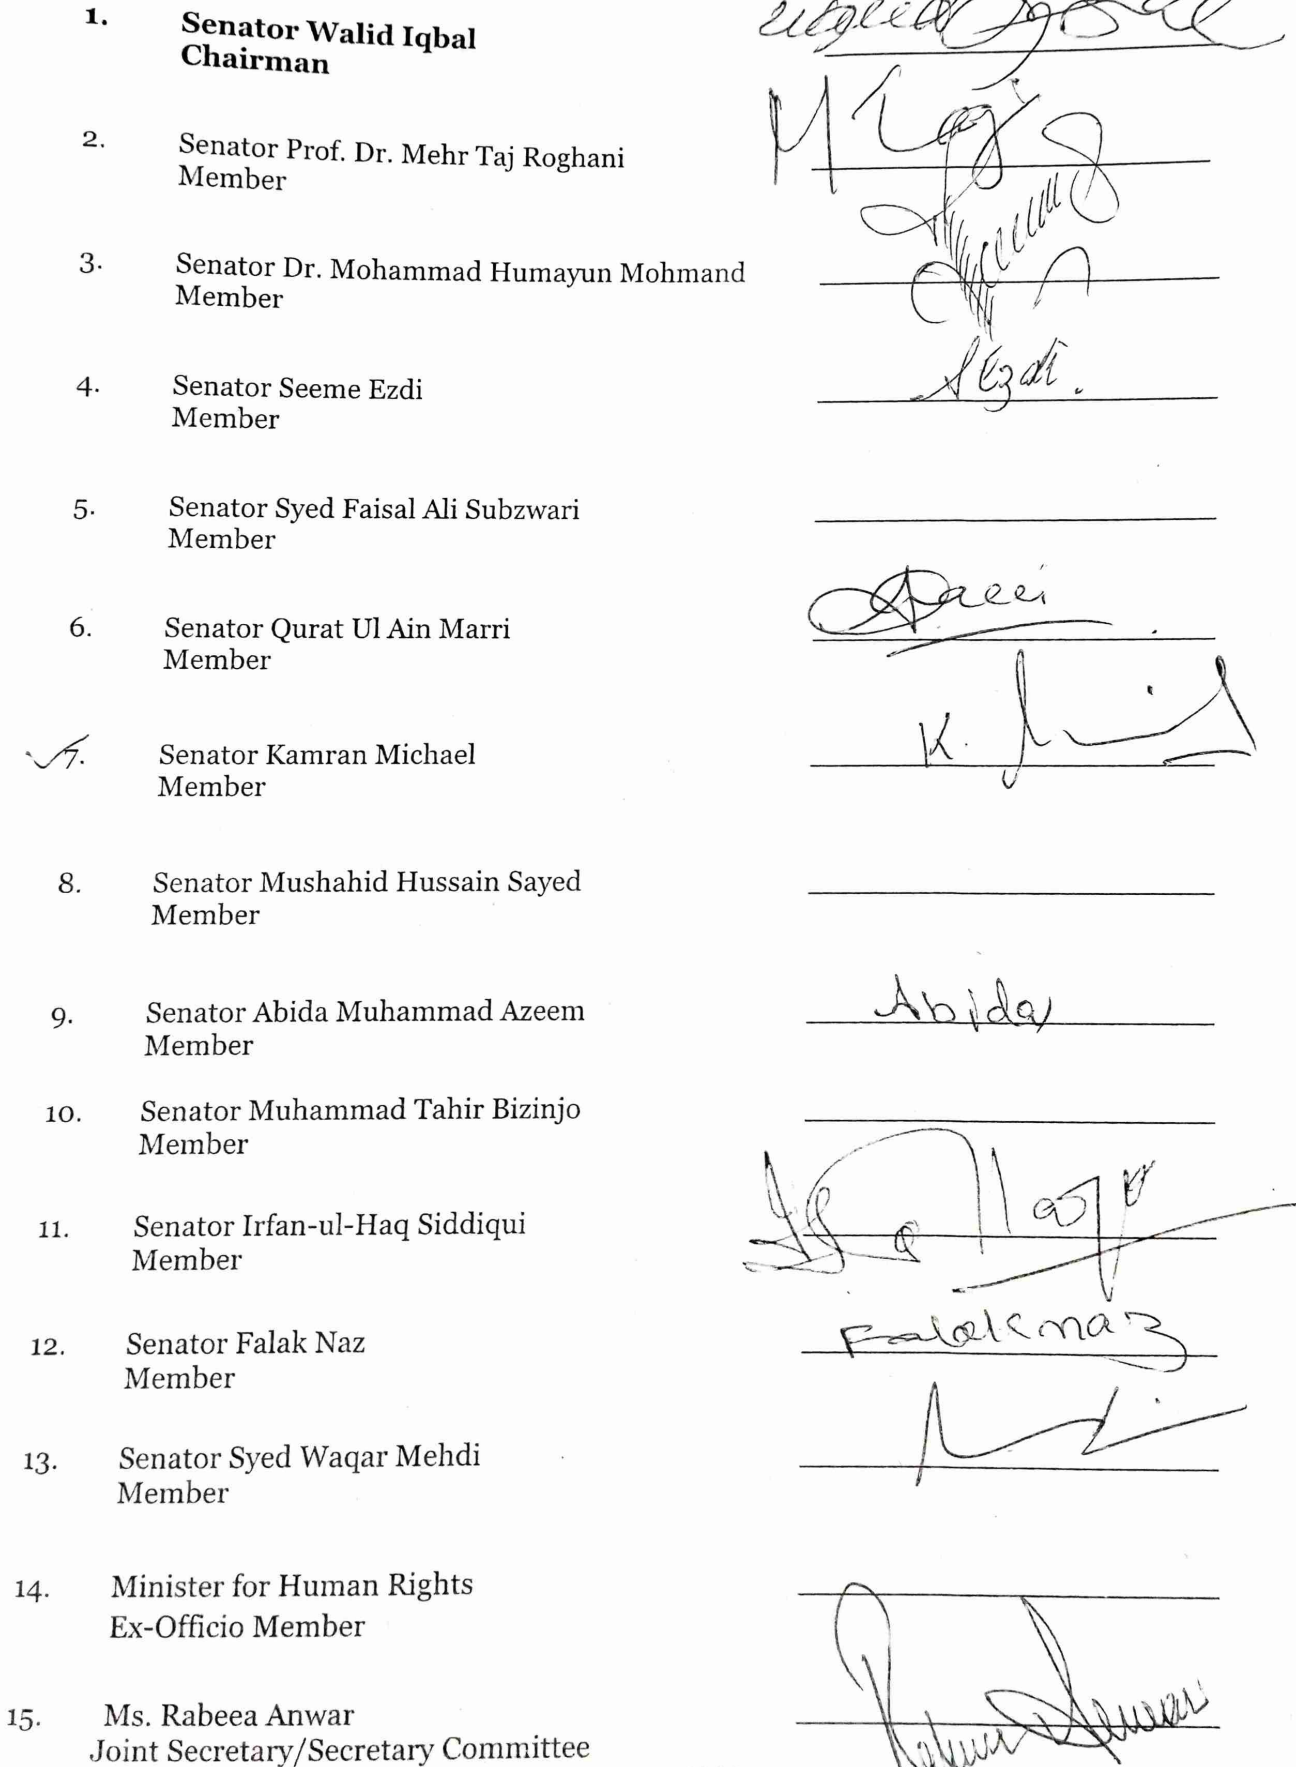 1. Senator Walid Iqbal
Chairman
2. Senator Prof. Dr. Mehr Taj Roghani
Member
M Taj
3. Senator Dr. Mohammad Humayun Mohmand
Member
4. Senator Seeme Ezdi
Member
S Ezdi.
5. Senator Syed Faisal Ali Subzwari
Member
6. Senator Qurat Ul Ain Marri
Member
7. Senator Kamran Michael
Member
K.
8. Senator Mushahid Hussain Sayed
Member
9. Senator Abida Muhammad Azeem
Member
Abida
10. Senator Muhammad Tahir Bizinjo
Member
11. Senator Irfan-ul-Haq Siddiqui
Member
12. Senator Falak Naz
Member
Falak naz
13. Senator Syed Waqar Mehdi
Member
14. Minister for Human Rights
Ex-Officio Member
15. Ms. Rabeea Anwar
Joint Secretary/Secretary Committee